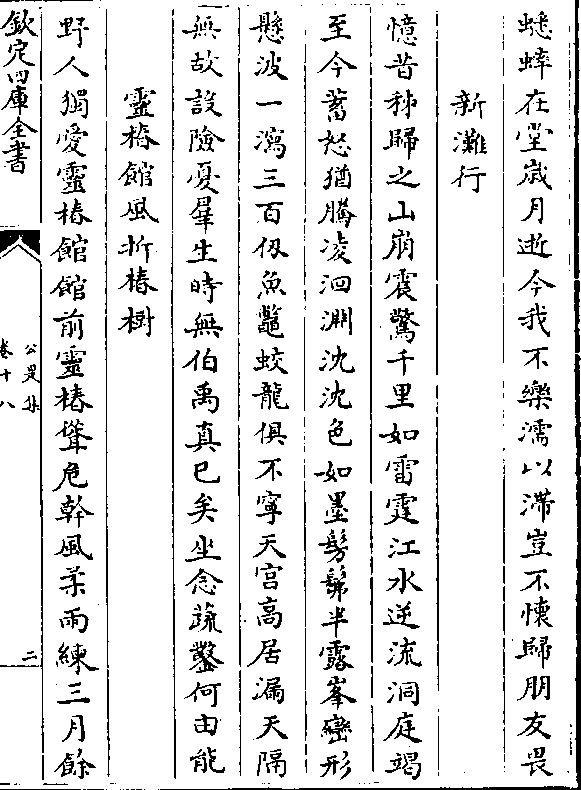 蟋蟀在堂歲月逝今我不樂濡以滯豈不懷歸朋友畏
新灘行
憶昔秭歸之山崩震驚千里如雷霆江水逆流洞庭竭
至今蓄怒猶騰凌洄淵沈沈色如墨髣髴半露峯巒形
懸波一瀉三百仭魚鼈蛟龍俱不寧天宫高居漏天隔
無故設險憂羣生時無伯禹真已矣坐念疏鑿何由能
靈椿館風折椿樹
野人獨愛靈椿館館前靈椿聳危幹風柔雨練三月餘
欽定四庫全書
公是集
卷十八
二